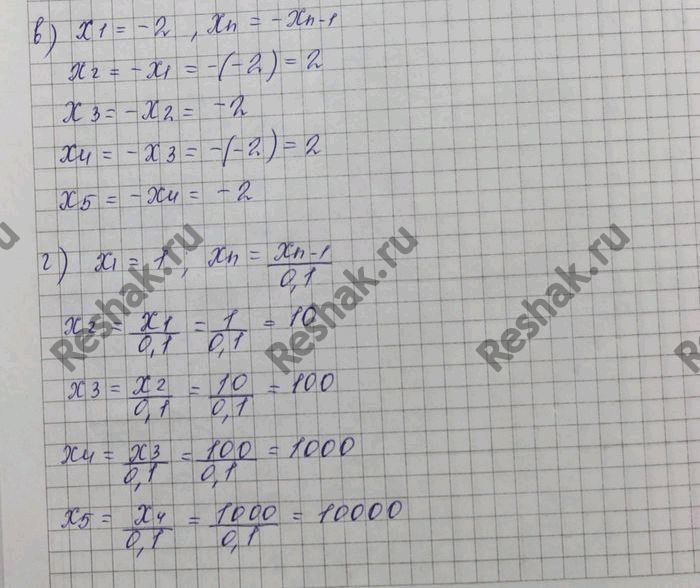 в) x1 = -2 , xn = -xn-1
x2 = -x1 = -(-2) = 2
x3 = -x2 = -2
x4 = -x3 = -(-2) = 2
x5 = -x4 = -2
г) x1 = 1 , xn = xn-1/0,1
x2 = x1/0,1 = 1/0,1 = 10
x3 = x2/0,1 = 10/0,1 = 100
x4 = x3/0,1 = 100/0,1 = 1000
x5 = x4/0,1 = 1000/0,1 = 10000
Reshak.ru
Reshak.ru
Reshak.ru